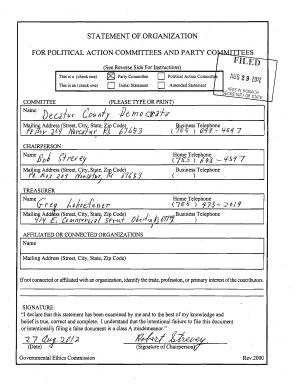 STATEMENT OF ORGANIZATION
FOR POLITICAL ACTION COMMITTEES AND PARTY COMMITTEES
(See Reverse Side For Instructions)
FILED
AUG 29 2012
KRIS W. KOBACH
SECRETARY OF STATE
This is a (check one) Party Committee Political Action Committee
This is an (check one) Initial Statement Amended Statement
COMMITTEE (PLEASE TYPE OR PRINT)
Name
Decatur County Democrats
Mailing Address (Street, City, State, Zip Code) Business Telephone
Po Box 209 Norcatur KS 67653 (785) 693-4597
CHAIRPERSON
Name Home Telephone
Bob Strevey (785) 693-4597
Mailing Address (Street, City, State, Zip Code) Business Telephone
Po. Box 209 Norcatur, KS 67653 ( )
TREASURER
Name Home Telephone
Greg Lohoefener (785) 475-2019
Mailing Address (Street, City, State, Zip Code) Business Telephone
414 E. Commercial Street Oberlin, KS ( )
AFFILIATED OR CONNECTED ORGANIZATIONS
Name
Mailing Address (Street, City, State, Zip Code)
If not connected or affiliated with an organization, identify the trade, profession, or primary interest of the contributors.
SIGNATURE:
"I declare that this statement has been examined by me and to the best of my knowledge and
belief is true, correct and complete. I understand that the intentional failure to file this document
or intentionally filing a false document is a Class A misdemeanor."
27 Aug 2012 Robert Strevey
(Date) (Signature of Chairperson)
Governmental Ethics Commission Rev.2000